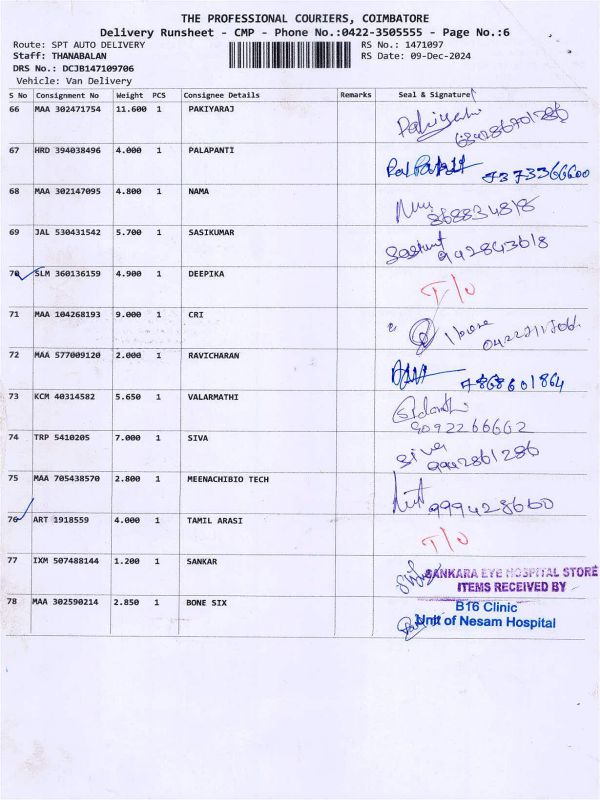 THE PROFESSIONAL COURIERS, COIMBATORE
Delivery Runsheet - CMP - Phone No.:0422-3505555 - Page No.:6
Route: SPT AUTO DELIVERY RS No.: 1471097
Staff: THANABALAN RS Date: 09-Dec-2024
DRS No.: DCJB147109706
Vehicle: Van Delivery
S No Consignment No Weight PCS Consignee Details Remarks Seal & Signature
66 MAA 302471754 11.600 1 PAKIYARAJ
67 HRD 394038496 4.000 1 PALAPANTI
7373366600
68 MAA 302147095 4.800 1 NAMA
69 JAL 530431542 5.700 1 SASIKUMAR
70 SLM 360136159 4.900 1 DEEPIKA
71 MAA 104268193 9.000 1 CRI
72 MAA 577009120 2.000 1 RAVICHARAN
7868601864
73 KCM 40314582 5.650 1 VALARMATHI
9092266662
74 TRP 5410205 7.000 1 SIVA
siva
9942861286
75 MAA 705438570 2.800 1 MEENACHIBIO TECH
9994428660
76 ART 1918559 4.000 1 TAMIL ARASI
77 IXM 507488144 1.200 1 SANKAR
SANKARA EYE HOSPITAL STORE
ITEMS RECEIVED BY
78 MAA 302590214 2.850 1 BONE SIX
B16 Clinic
Unit of Nesam Hospital